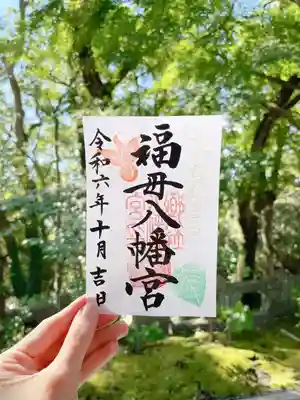 福母八幡宮
令和六年十月吉日